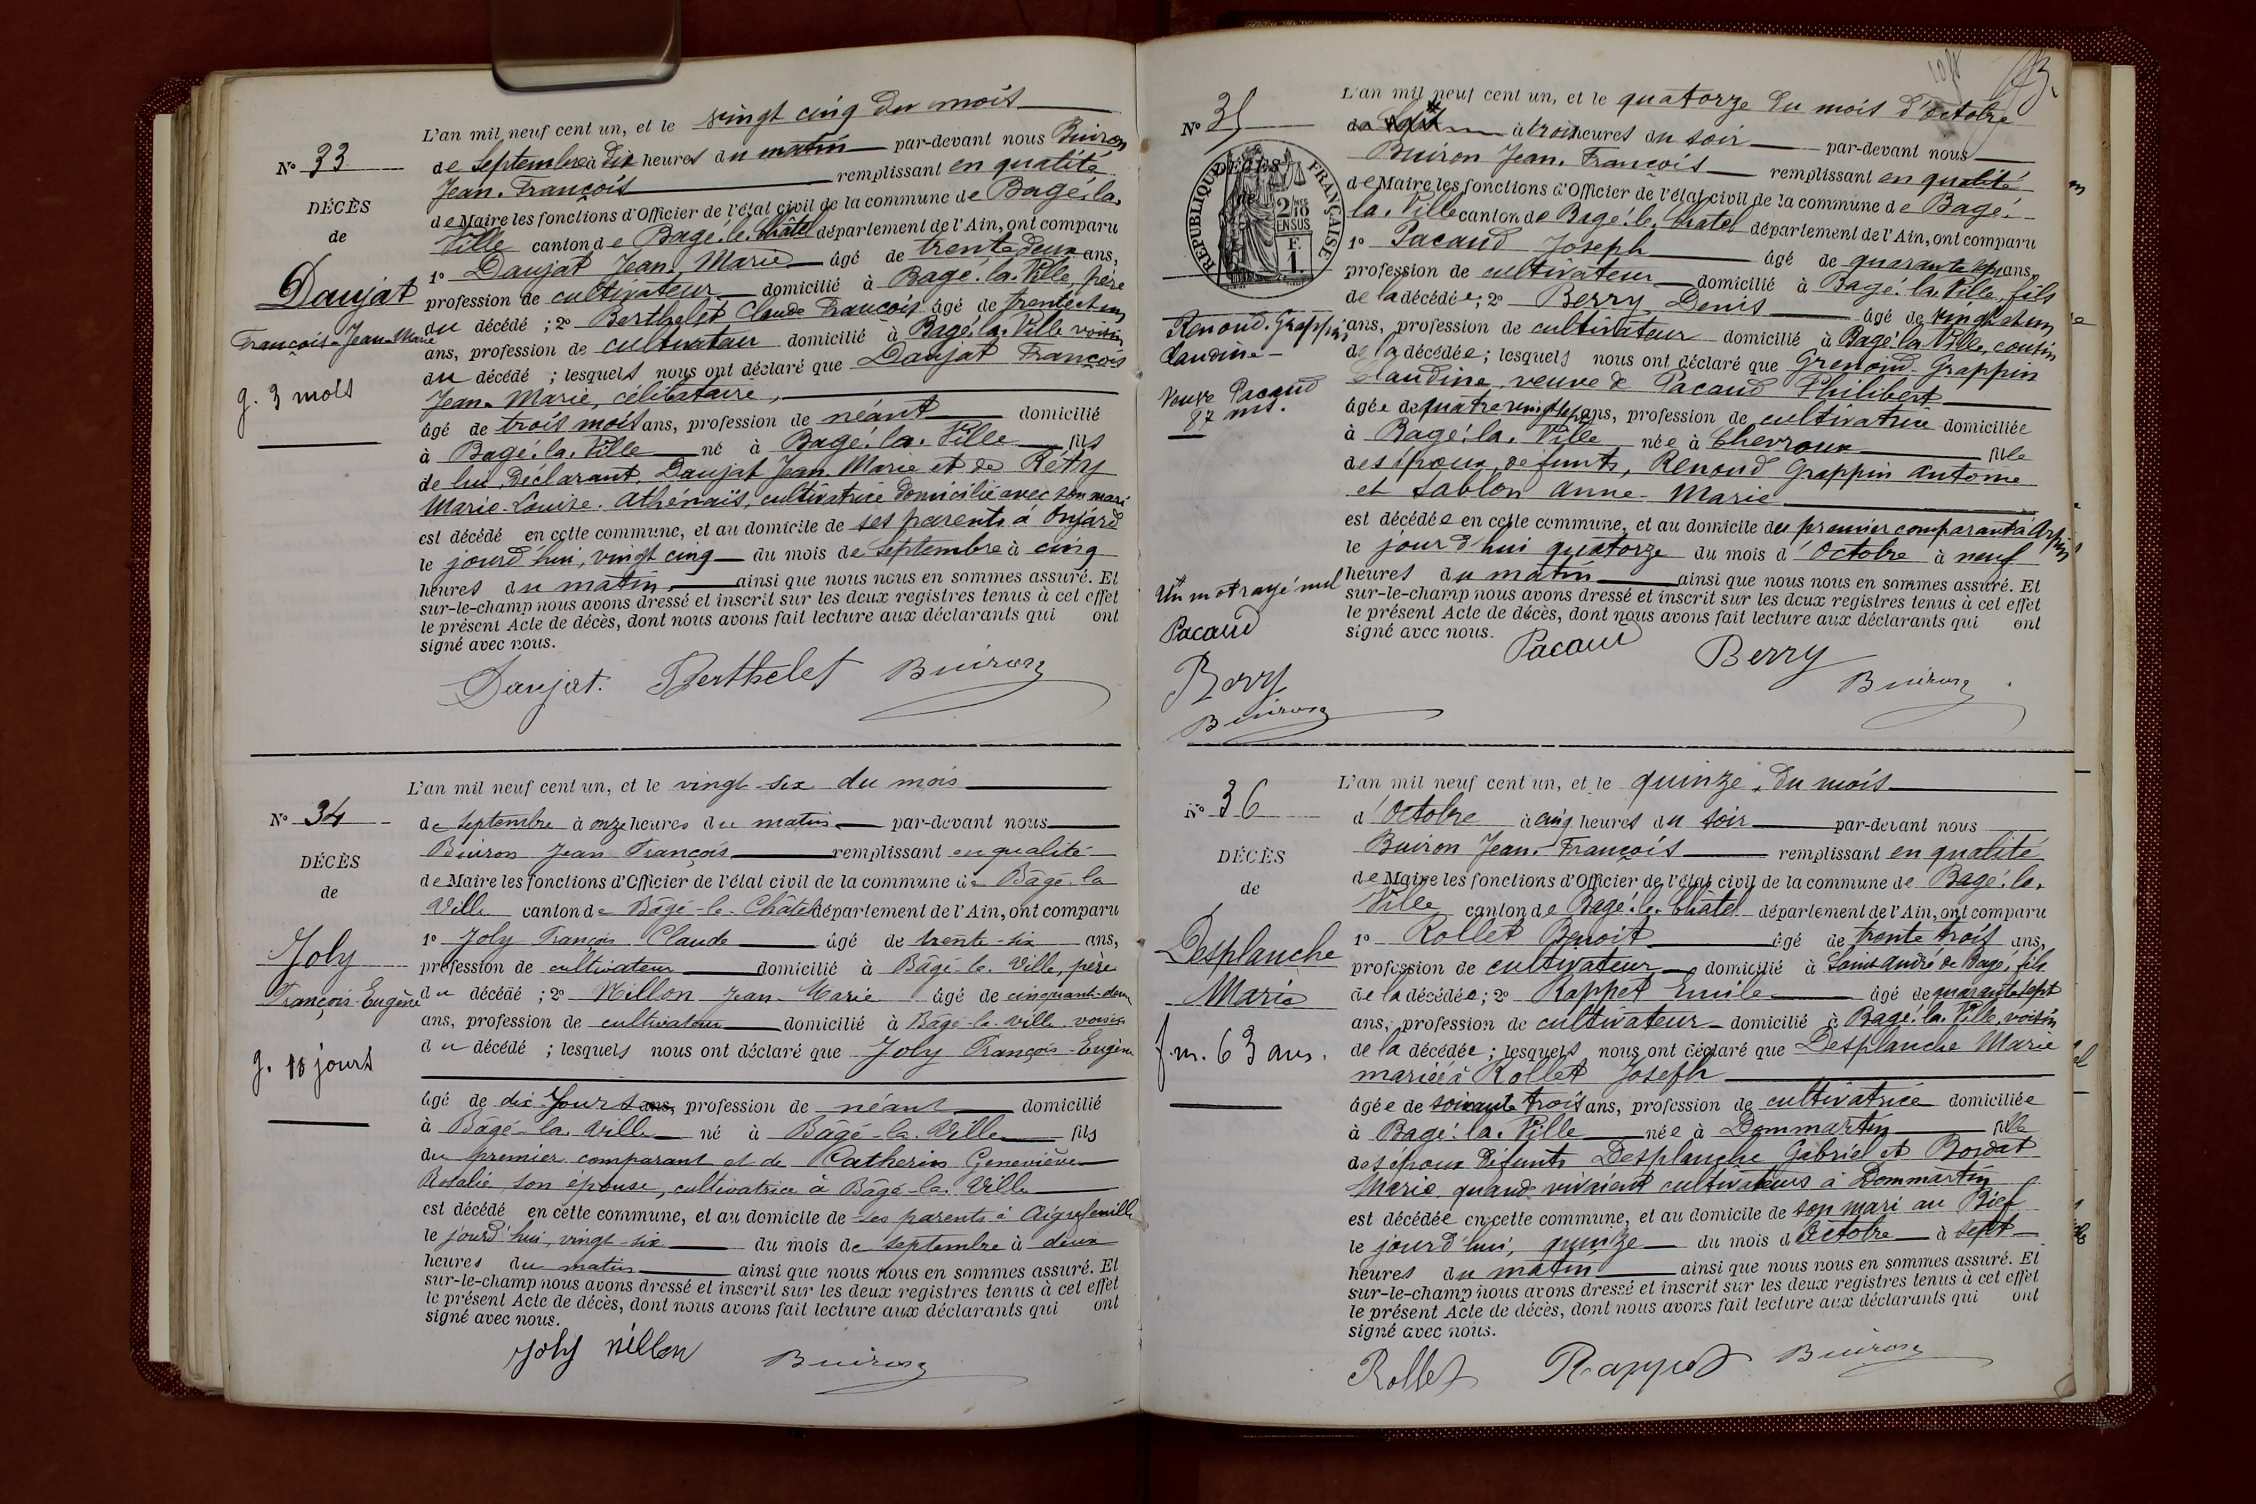 N° 33
DÉCÈS
de
Daujat
François-Jean-Marie
g. 3 mois
L'an mil neuf cent un, et le vingt cinq du mois
de Septembre à dix heures du matin par-devant nous Buiron
Jean-François remplissant en qualité
de Maire les fonctions d'Officier de l'état civil de la commune de Bagé-la-
Ville canton de Bagé-le-Châtel département de l'Ain, ont comparu
1° Daujat Jean-Marie âgé de trente deux ans,
profession de cultivateur domicilié à Bagé-la-Ville, père
du décédé ; 2° Berthelet Claude François âgé de trente et un
ans, profession de cultivateur domicilié à Bagé-la-Ville voisin
du décédé ; lesquels nous ont déclaré que Daujat François
Jean-Marie, célibataire,
âgé de trois mois ans, profession de néant domicilié
à Bagé-la-Ville né à Bagé-la-Ville fils
de lui Déclarant, Daujat Jean Marie et de Réty
Marie-Louise-Athénaïs, cultivatrice domicilié avec son mari
est décédé en cette commune, et au domicile de ses parents à Onjard
le jourd'hui, vingt cinq du mois de Septembre à cinq
heures du matin, ainsi que nous nous en sommes assuré. Et
sur-le-champ nous avons dressé et inscrit sur les deux registres tenus à cet effet
le présent Acte de décès, dont nous avons fait lecture aux déclarants qui ont
signé avec nous.
Daujat. Berthelet Buiron
N° 34
DÉCÈS
de
Joly
François-Eugène
g. 10 jours
L'an mil neuf cent un, et le vingt-six du mois
de septembre à onze heures du matin par-devant nous
Buiron Jean François remplissant en qualité
de Maire les fonctions d'Officier de l'état civil de la commune de Bâgé-la
Ville canton de Bâgé-le-Châtel département de l'Ain, ont comparu
1° Joly François Claude âgé de trente-six ans,
profession de cultivateur domicilié à Bâgé-la-Ville, père
du décédé ; 2° Nillon Jean-Marie âgé de cinquant-deux
ans, profession de cultivateur domicilié à Bâgé-la-ville voisin
du décédé ; lesquels nous ont déclaré que Joly François-Eugène
âgé de dix-Jours ans, profession de néant domicilié
à Bâgé-la-Ville né à Bâgé-la-Ville fils
du premier comparant et de Catherin Geneviève
Rosalie, son épouse, cultivatrice à Bâgé-la-Ville
est décédé en cette commune, et au domicile de ses parents à Aigrefeuille
le jourd'hui, vingt-six du mois de septembre à deux
heures du matin ainsi que nous nous en sommes assuré. Et
sur-le-champ nous avons dressé et inscrit sur les deux registres tenus à cet effet
le présent Acte de décès, dont nous avons fait lecture aux déclarants qui ont
signé avec nous.
Joly Nillon Buiron
N° 35
DÉCÈS
de
RÉPUBLIQUE FRANÇAISE
2/10 EN SUS
F. 1
Renoud-Grappin
Claudine-
Veuve Pacaud
87 ans.
Un mot rayé nul
Pacaud
Berry
Buiron
L'an mil neuf cent un, et le quatorze du mois d'octobre
à trois heures du soir par-devant nous
Buiron Jean-François remplissant en qualité
de Maire les fonctions d'Officier de l'état civil de la commune de Bagé-
la-Ville canton de Bagé-le-Châtel département de l'Ain, ont comparu
1° Pacaud Joseph âgé de quarante sept ans,
profession de cultivateur domicilié à Bagé-la-Ville, fils
de la décédée ; 2° Berry Denis âgé de vingt et un
ans, profession de cultivateur domicilié à Bagé-la-Ville, cousin
de la décédée ; lesquels nous ont déclaré que Grenoud-Grappin
Claudine, veuve de Pacaud Philibert
âgée de quatre vingt sept ans, profession de cultivatrice domiciliée
à Bagé-la-Ville née à Chevroux fille
des époux défunts, Renoud Grappin Antoine
et Sablon Anne-Marie
est décédée en cette commune, et au domicile du premier comparant à
le jourd'hui quatorze du mois d'Octobre à neuf
heures du matin ainsi que nous nous en sommes assuré. Et
sur-le-champ nous avons dressé et inscrit sur les deux registres tenus à cet effet
le présent Acte de décès, dont nous avons fait lecture aux déclarants qui ont
signé avec nous.
Pacaud Berry Buiron
N° 36
DÉCÈS
de
Desplanche
Marie
f. m. 63 ans.
L'an mil neuf cent un, et le quinze, du mois
d'Octobre à cinq heures du soir par-devant nous
Buiron Jean-François remplissant en qualité
de Maire les fonctions d'Officier de l'état civil de la commune de Bagé-la-
Ville canton de Bagé-le-Châtel département de l'Ain, ont comparu
1° Rollet Benoit âgé de trente trois ans,
profession de cultivateur domicilié à Saint André de Bagé, fils
de la décédée ; 2° Rappet Emile âgé de quarante sept
ans, profession de cultivateur domicilié à Bagé-la-Ville, voisin
de la décédée ; lesquels nous ont déclaré que Desplanche Marie
mariée à Rollet Joseph
âgée de soixante trois ans, profession de cultivatrice domiciliée
à Bagé-la-Ville née à Dommartin fille
des époux défunts Desplanche Gabriel et Bordat
Marie quand vivaient cultivateurs à Dommartin
est décédée en cette commune, et au domicile de son mari au Bief
le jourd'hui, quinze du mois d'Octobre à sept
heures du matin ainsi que nous nous en sommes assuré. Et
sur-le-champ nous avons dressé et inscrit sur les deux registres tenus à cet effet
le présent Acte de décès, dont nous avons fait lecture aux déclarants qui ont
signé avec nous.
Rollet Rappet Buiron